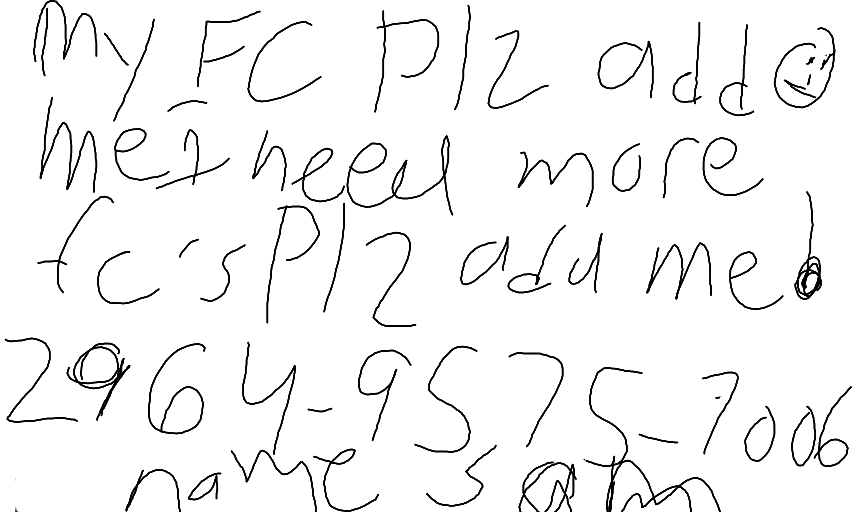 My FC Plz add
me I need more
fc's Plz add me!
2964-9575-7006
name's